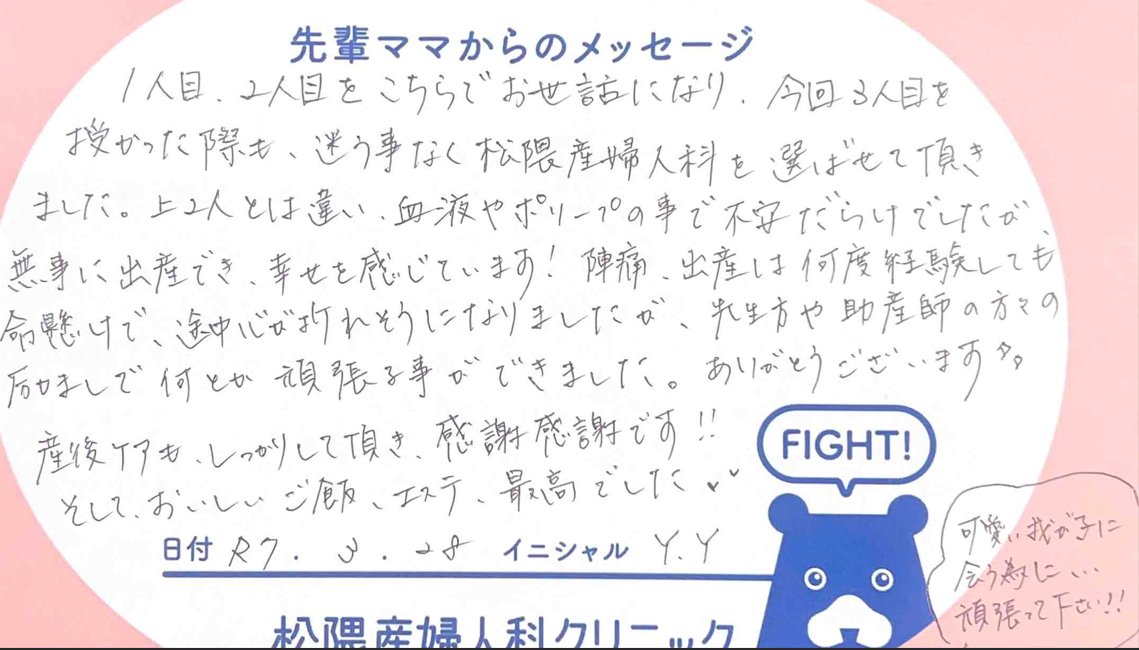 先輩ママからのメッセージ
1人目、2人目をこちらでお世話になり、今回3人目を
授かった際も、迷う事なく松隈産婦人科を選ばせて頂き
ました。上2人とは違い、血液やポリープの事で不安だらけでしたが、
無事に出産でき、幸せを感じています！陣痛、出産は何度経験しても
命懸けで、途中心が折れそうになりましたが、先生方や助産師の方々の
励ましで何とか頑張る事ができました。ありがとうございます
産後ケアも、しっかりして頂き、感謝感謝です!!
そして、おいしいご飯、エステ、最高でした♥♥
FIGHT!
日付 R7. 3. 28 イニシャル Y.Y
可愛い我が子に
会う為に…
頑張って下さい!!
松隈産婦人科クリニック